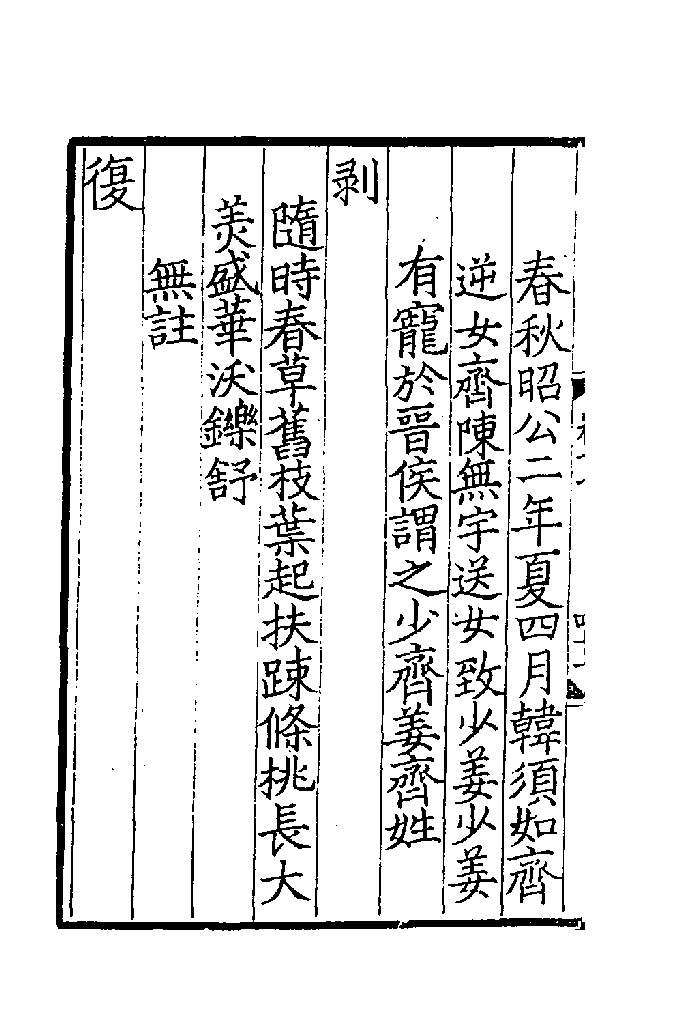 春秋昭公二年夏四月韓須如齊
逆女齊陳無宇送女致少姜少姜
有寵於晉侯謂之少齊姜齊姓
剥
隨時春草舊枝葉起扶踈條桃長大
羙盛華沃鑠舒
無註
復